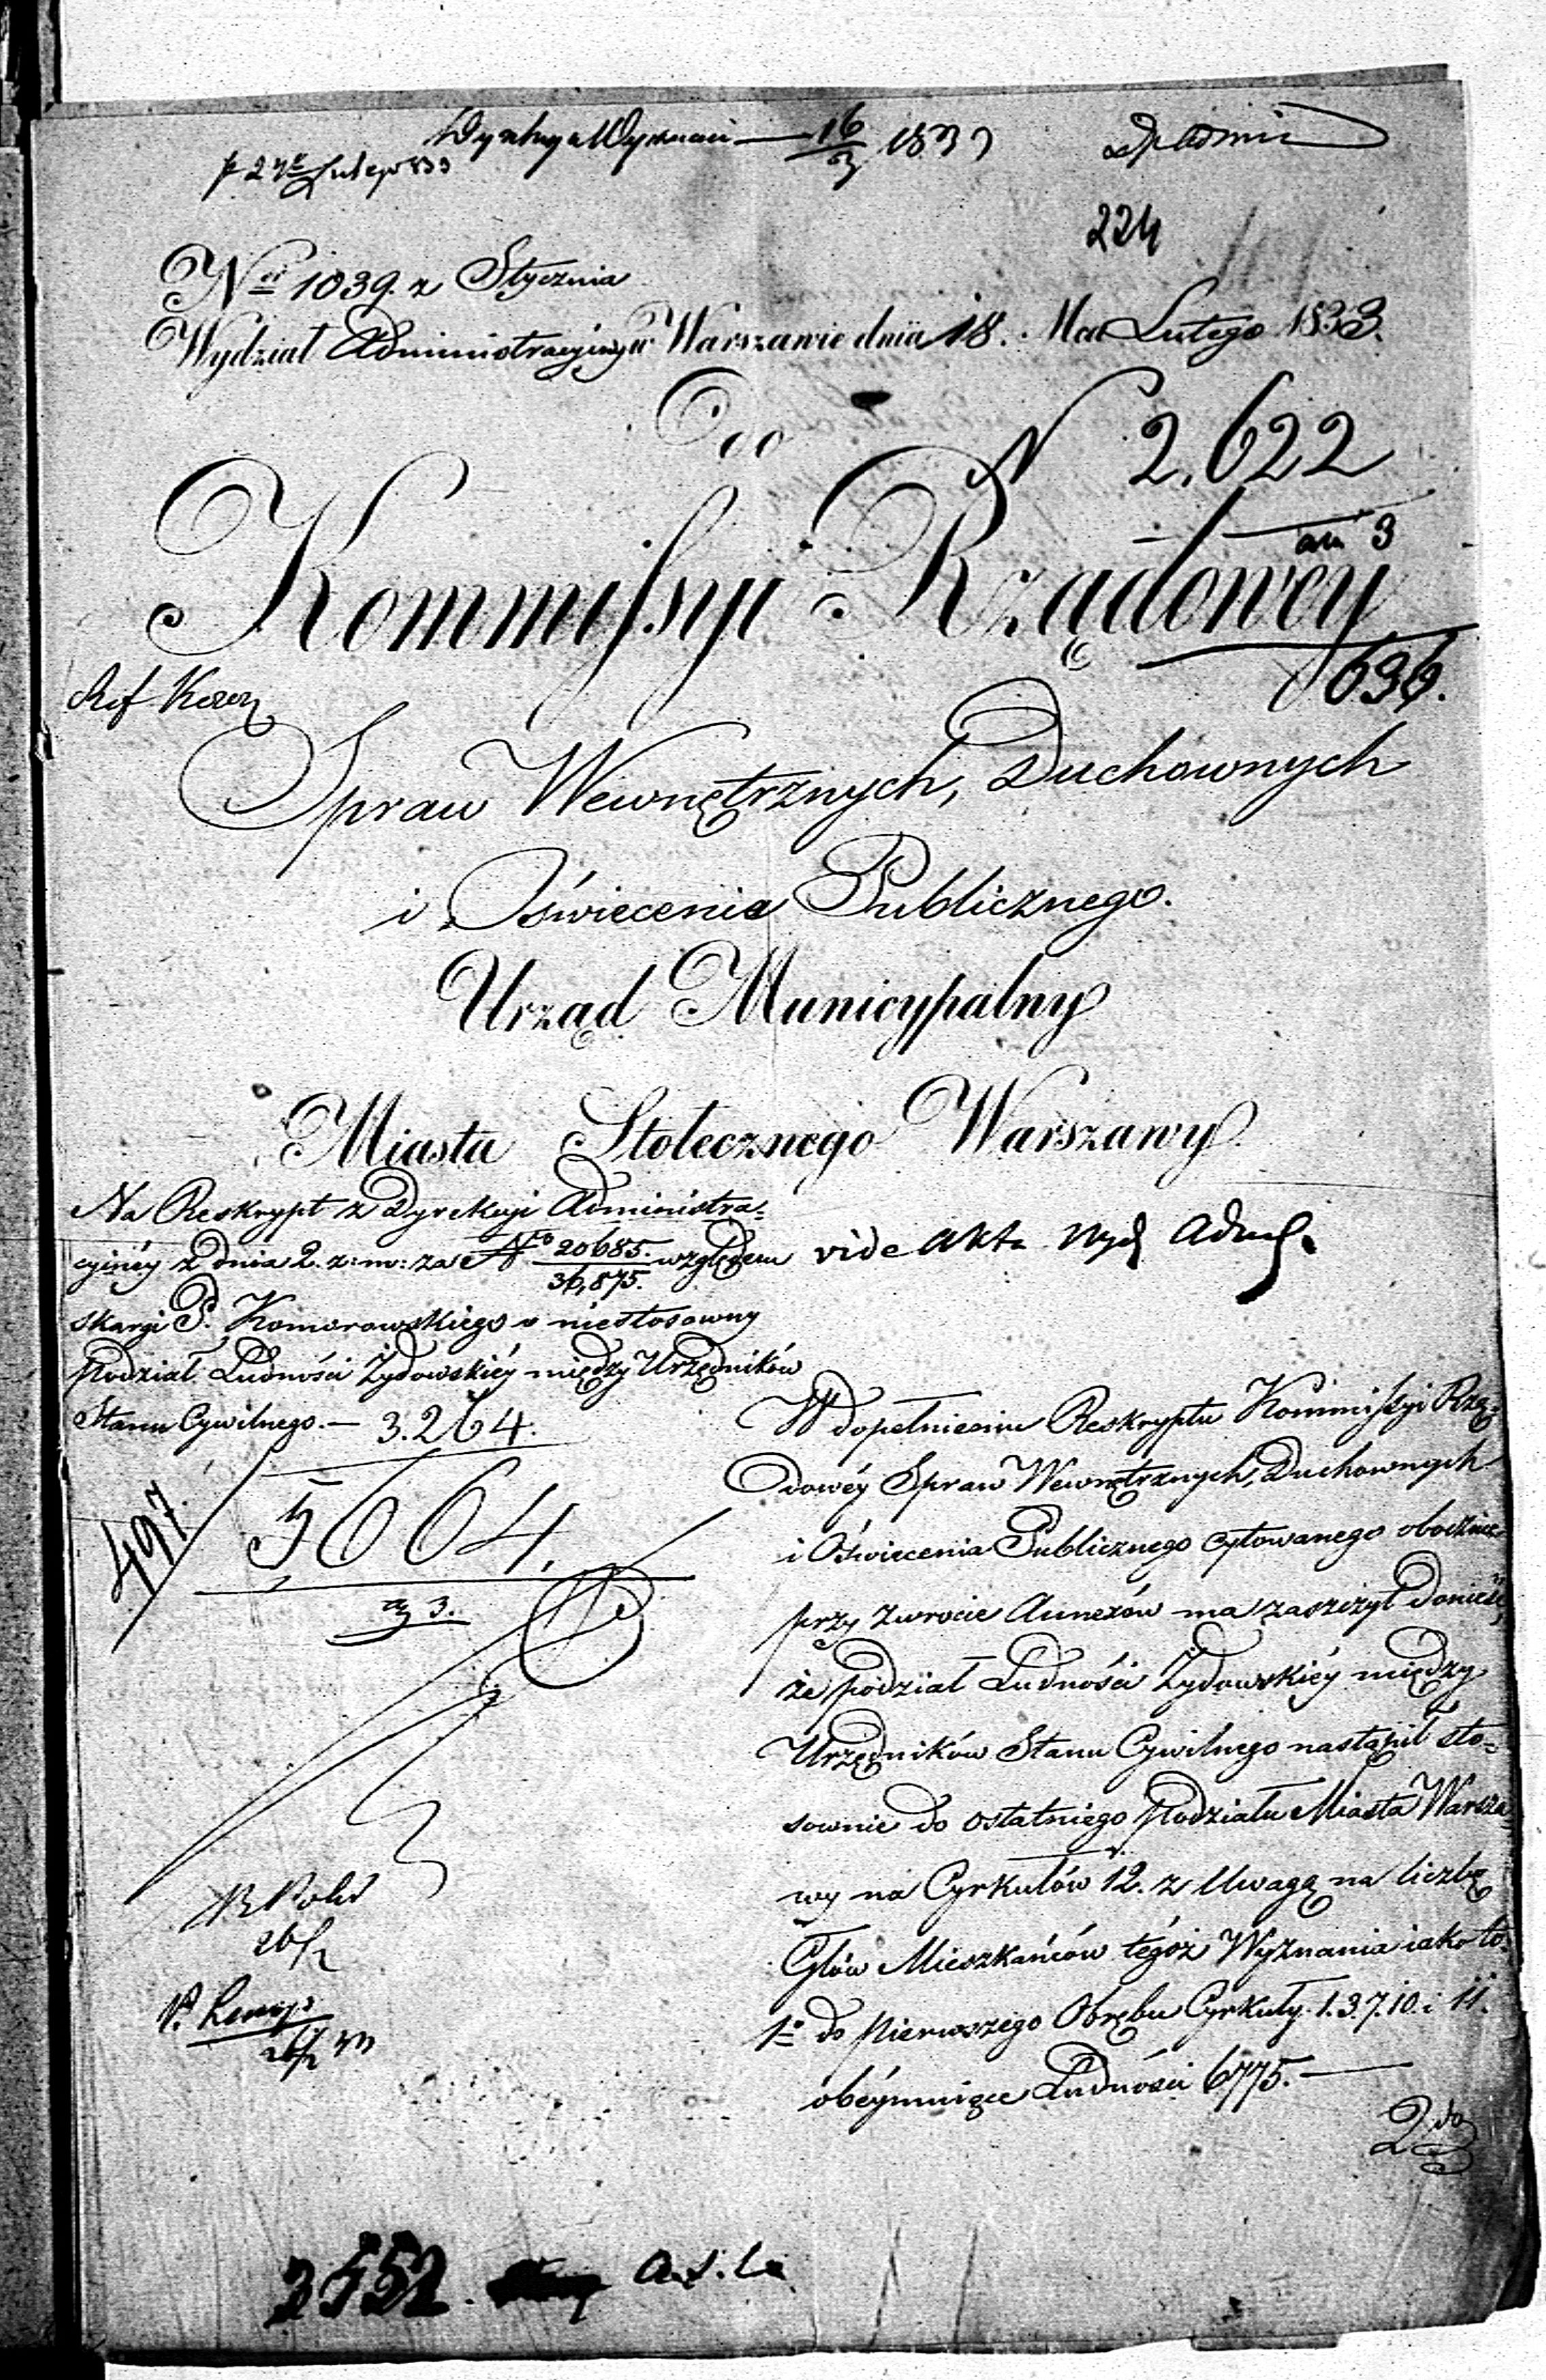 16/3 1833
224
Nr 1039. z Stycznia
Wydział Administracyiny w Warszawie dnia 18. Mca Lutego 1833.
Do
N 2.622
Kommissyi Rządowey
636.
Spraw Wewnętrznych, Duchownych
i Oświecenia Publicznego.
Urząd Municypalny
Miasta Stołecznego Warszawy
Na Reskrypt z Dyrekcyi Administra-
cyinéy z dnia 2. z: m: za No 20685./36,875. względem
skargi P. Komorowskiego o niestosowny
podział Ludności Żydowskiéy między Urzędników
Stanu Cywilnego. — 3.264.
vide Akta Wydz Adm.
497
5664.
3.
W dopełnieniu Reskryptu Kommissyi Rzą-
dowéy Spraw Wewnętrznych, Duchownych
i Oświecenia Publicznego cytowanego obocznie
przy zwrocie Annexów ma zaszczyt donieść,
że podział Ludności Żydowskiéy między
Urzędników Stanu Cywilnego nastąpił sto-
sownie do ostatniego podziału Miasta Warsza
wy na Cyrkułów 12. z Uwagą na liczbę
Głów Mieszkańców tégóż Wyznania iako to:
1o do pierwszego Obrębu Cyrkuły 1. 3. 7. 10. i 11.
obéymuiące Ludności 6775. —
2do
26/2
26/2 33
2552.